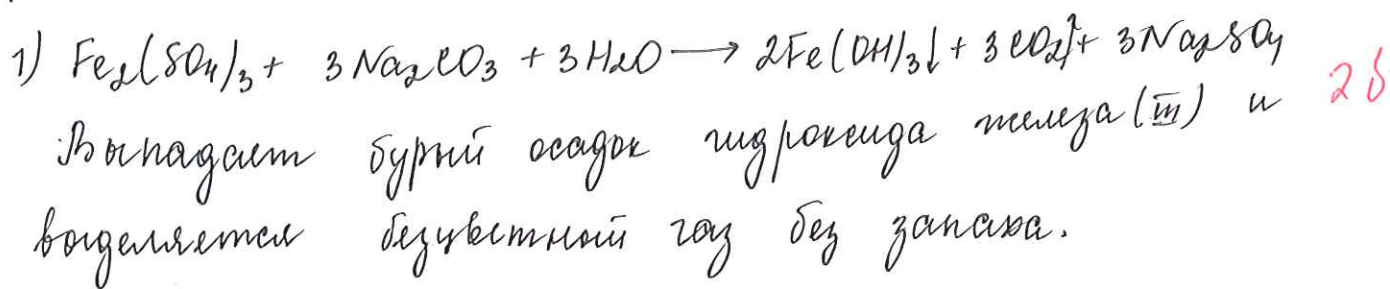 1) Fe₂(SO₄)₃ + 3Na₂CO₃ + 3H₂O ⟶ 2Fe(OH)₃↓ + 3CO₂↑ + 3Na₂SO₄ 2б
Выпадает бурый осадок гидроксида железа (III) и
выделяется безцветный газ без запаха.